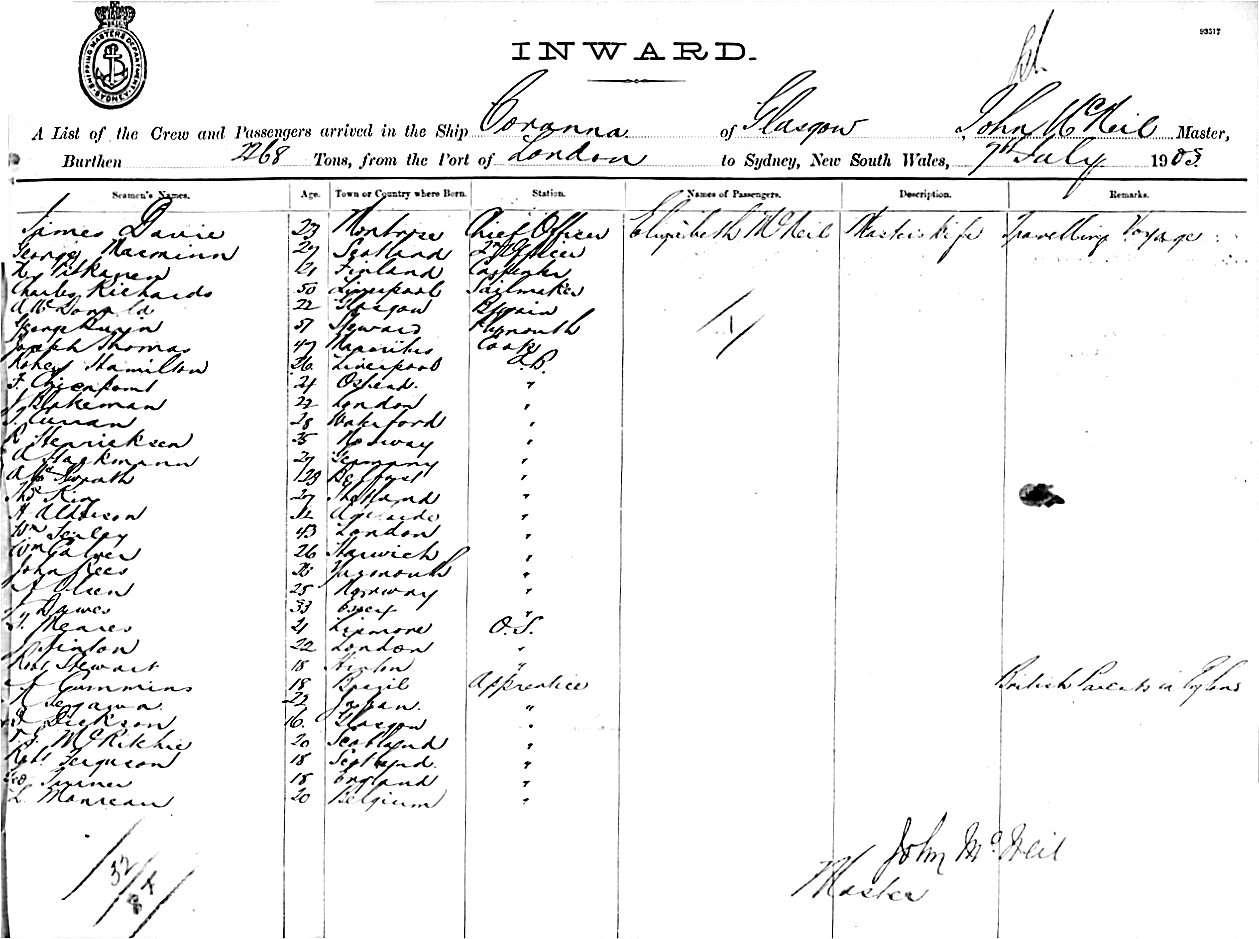 SHIPPING MASTERS DEPARTMENT SYDNEY
93517
INWARD.
A List of the Crew and Passengers arrived in the Ship Coranna of Glasgow John McNeil Master,
Burthen 2268 Tons, from the Port of London to Sydney, New South Wales, 7th July 1905
Seamen's Names. Age. Town or Country where Born. Station. Names of Passengers. Description. Remarks.
James Davie 23 Montrose Chief Officer Elizabeth McNeil Masters Wife Travelling Voyage
George 27 Scotland 2nd Officer
Finland Carpenter
Charles Richards 50 Liverpool Sailmaker
A McDonald 22 Glasgow
George 57 Steward Plymouth
Joseph Thomas 47 Mauritius Cook
Robert Hamilton 26 Liverpool A.B.
F. 24 Ostend. "
J Blakeman 22 London "
Curran 28 Waterford "
R Henricksen 25 Norway "
A Hackmann 27 Germany "
23 Belfast "
Thos King 27 Shetland "
A Addison Adelaide "
Wm 43 London "
Wm 26 Harwich "
John Rees Yarmouth "
Olsen 25 Norway "
Dawes 33 Essex "
T. Meares 21 Lismore O.S.
22 London "
Robt Stewart 18 "
A Cummins 18 Brazil Apprentice British Parents in England
Segawa 22 Japan. "
Dickson 16. Glasgow "
McRitchie 20 Scotland "
Robt Ferguson 18 Scotland. "
Geo Turner 18 England "
L. 20 Belgium "
John McNeil
Master
32
8